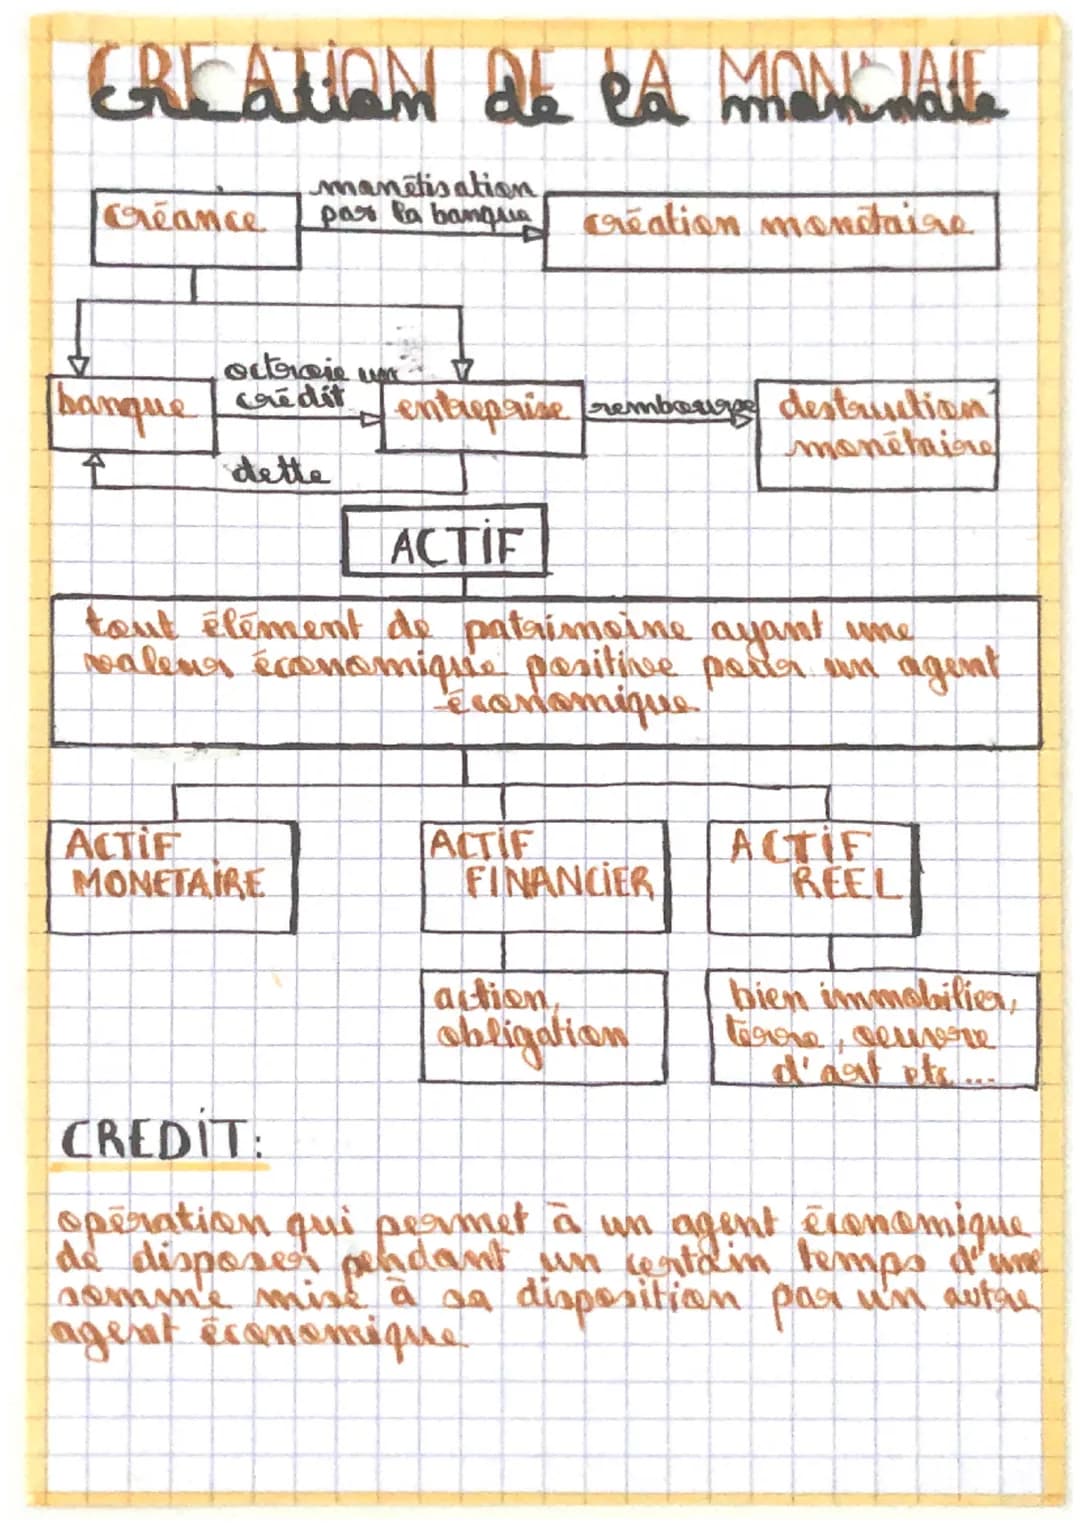 CREATION DE LA MONNAIE
Création de la monnaie
créance
monétisation
par la banque
création monétaire
banque
octroie un
crédit
entreprise
rembourse
destruction
monétaire
dette
ACTIF
tout élément de patrimoine ayant une
valeur économique positive pour un agent
économique
ACTIF
MONETAIRE
ACTIF
FINANCIER
ACTIF
REEL
action,
obligation
bien immobilier,
terre, oeuvre
d'art etc...
CREDIT:
opération qui permet à un agent économique
de disposer pendant un certain temps d'une
somme mise à sa disposition par un autre
agent économique